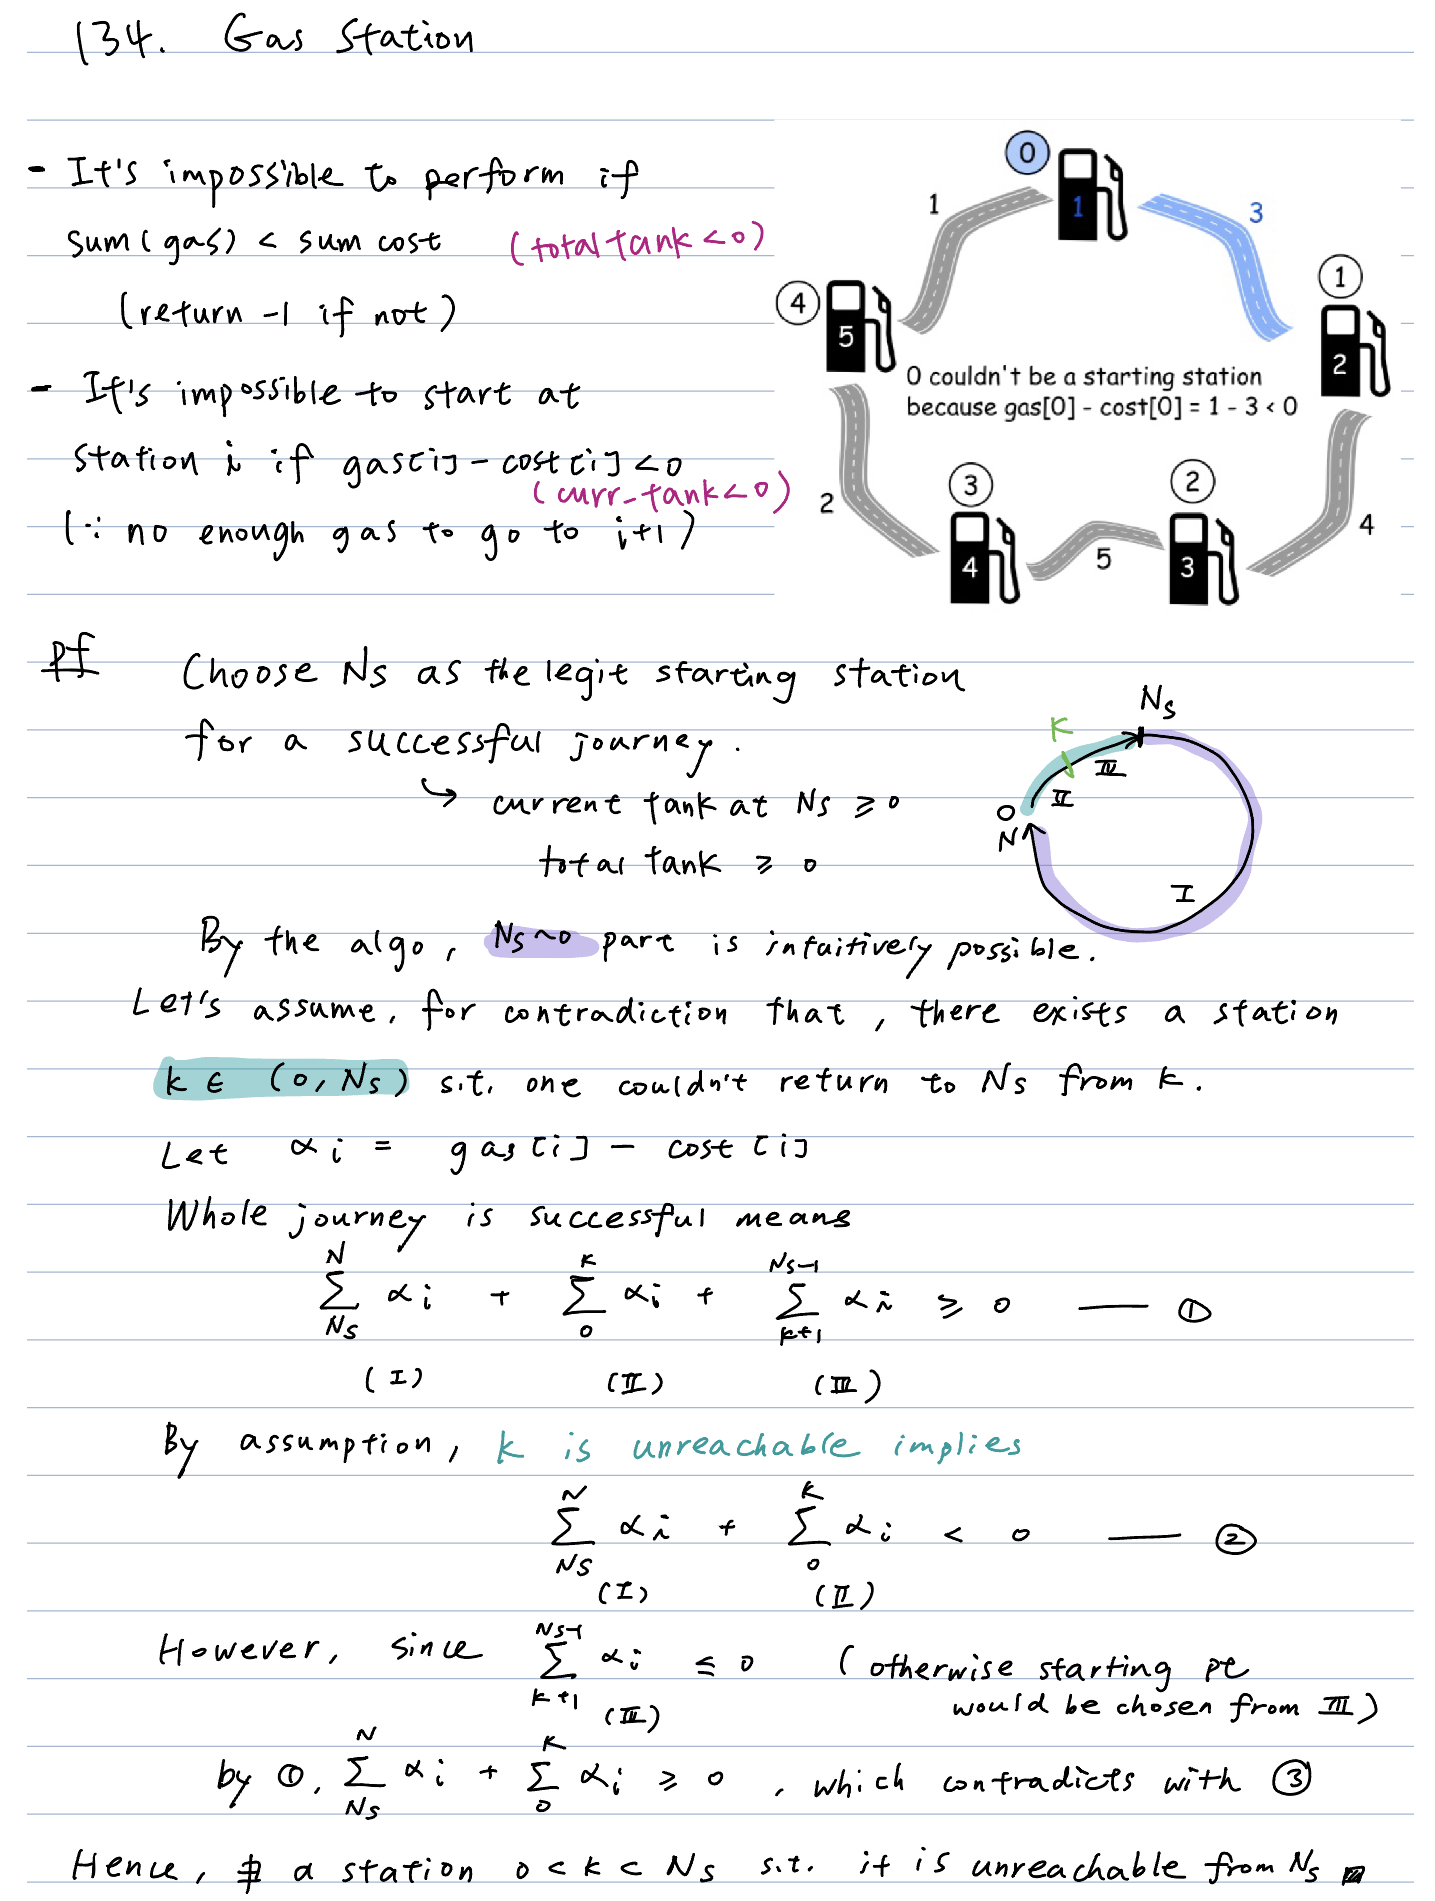 134. Gas Station
- It's impossible to perform if
sum(gas) < sum cost (total tank < 0)
(return -1 if not)
- It's impossible to start at
station i if gas[i] - cost[i] < 0
(curr_tank < 0)
(∵ no enough gas to go to i+1)
0
1
1
3
1
2
4
5
0 couldn't be a starting station
because gas[0] - cost[0] = 1 - 3 < 0
2
3
4
5
2
3
4
pf Choose Ns as the legit starting station
for a successful journey.
↳ current tank at Ns ≥ 0
total tank ≥ 0
Ns
K
III
II
0
N
I
By the algo, Ns~0 part is intuitively possible.
Let's assume, for contradiction that, there exists a station
k ∈ (0, Ns) s.t. one couldn't return to Ns from k.
Let αi = gas[i] - cost[i]
Whole journey is successful means
N K Ns-1
Σ αi + Σ αi + Σ αi ≥ 0 — ①
Ns 0 k+1
(I) (II) (III)
By assumption, k is unreachable implies
N K
Σ αi + Σ αi < 0 — ②
Ns 0
(I) (II)
Ns-1
However, since Σ αi ≤ 0 (otherwise starting pt
k+1 (III) would be chosen from III)
N K
by ①, Σ αi + Σ αi ≥ 0, which contradicts with ③
Ns 0
Hence, ∄ a station 0 < k < Ns s.t. it is unreachable from Ns